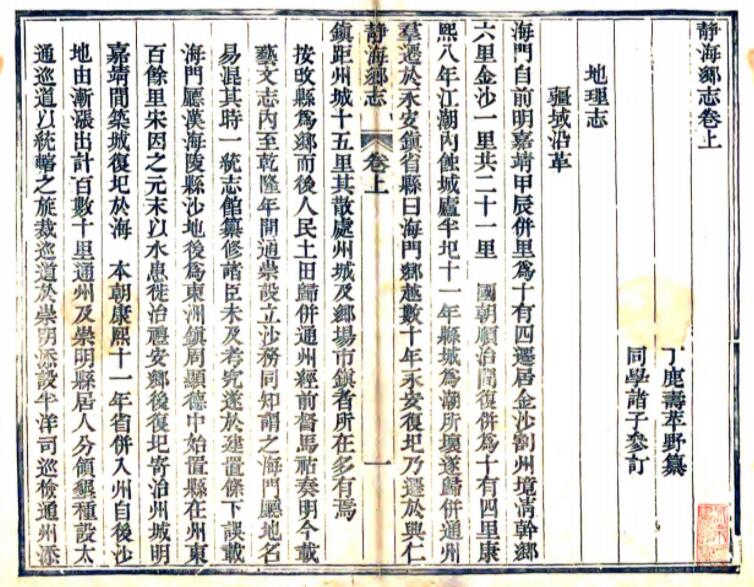 静海鄉志卷上
丁鹿壽苹野纂
同學諸子參訂
地理志
疆域沿革
海門自前明嘉靖甲辰併里爲十有四遷居金沙割州境清幹鄉
六里金沙一里共二十一里　國朝順治間復併爲十有四里康
熙八年江潮內蝕城廬半圯十一年縣城爲潮所壞遂歸併通州
羣遷於永安鎮省縣曰海門鄉越數十年永安復圯乃遷於興仁
鎮距州城十五里其散處州城及鄉場市鎮者所在多有焉
静海鄉志　卷上　一
按攺縣爲鄉而後人民土田歸併通州經前督馬祜奏明今載
藝文志內至乾隆年開通崇設立沙務同知謂之海門廳地名
易混其時一統志館纂修諸臣未及考究遂於建置條下誤載
海門廳漢海陵縣沙地後爲東洲鎮周顯德中始置縣在州東
百餘里宋因之元末以水患徙治禮安鄉後復圯寄治州城明
嘉靖間築城復圯於海　本朝康熙十一年省併入州自後沙
地由漸漲出計百數十里通州及崇明縣居人分領墾種設太
通巡道以統轄之旋裁巡道於崇明添設半洋司巡檢通州添